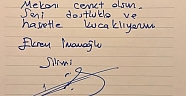 Mekanı cennet olsun.
Seni dostlukla ve
hasretle kucaklıyorum
Ekrem İmamoğlu
Silivri